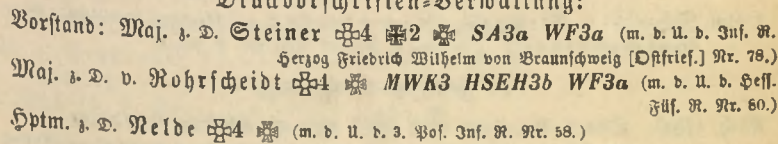 Druckvorschriften-Verwaltung:
Vorstand: Maj. z. D. Steiner 4 2 SA3a WF3a (m. d. U. d. Inf. R.
Herzog Friedrich Wilhelm von Braunschweig [Ostfries.] Nr. 78.)
Maj. z. D. v. Rohrscheidt 4 MWK3 HSEH3b WF3a (m. d. U. d. Hess.
Füs. R. Nr. 80.)
Hptm. z. D. Nelde 4 (m. d. U. d. 3. Pos. Inf. R. Nr. 58.)